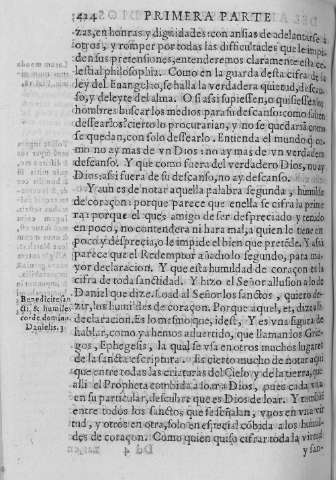 424 PRIMERA PARTE
zas, en honras y dignidades: con ansias de adelantarse a
otros, y romper por todas las dificultades que le impi-
den sus pretensiones, entenderemos claramente esta ce-
lestial philosophia. Como en la guarda desta cifra de la
ley del Euangelio, se halla la verdadera quietud, descan-
so, y deleyte del alma. O si assi supiessen, o quisiessen los
hombres buscar los medios para su descanso: como saben
dessearlos! cierto lo procurarian, y no se quedariã como
se quedan, con solo dessearlo. Entienda el mundo q̃ co-
mo no ay mas de vn Dios: no ay mas de vn verdadero
descanso. Y que como fuera del verdadero Dios, no ay
Dios: assi fuera de su descanso, no ay descanso.
Y aun es de notar aquella palabra segunda, humilde
de coraçon: porque parece que en ella se cifra la prime
ra: porque el que es amigo de ser despreciado y tenido
en poco, no contendera ni hara mal, a quien lo tiene en
poco y desprecia, o le impide el bien que pretẽde. Y assi
parece que el Redemptor añadio lo segundo, para ma-
yor declaracion. Y que esta humildad de coraçon es la
cifra de toda sanctidad. Y hizo el Señor allusion a lo de
Daniel que dize. Load al Señor los sanctos, quiero de-
zir, los humildes de coraçon. Porque aquel, et, dize alli
declaracion. Es lo mesmo que, idest, Y es vna figura de
hablar, como ya hemos aduertido, que llaman los Grie-
gos, Ephegesis, la qual se vsa en otros muchos lugares
de la sancta escriptura. Assi cierto mucho de notar aqui
que entre todas las criaturas del Cielo y de la tierra, que
alli el Propheta combida a loar a Dios, pues cada vna
en su particular, descubre que es Dios de loar. Y tambiẽ
entre todos los sanctos que se señalan, vnos en vna vir-
tud, y otros en otra, solo en especial cõbida a los humil-
des de coraçon. Como quien quiso cifrar toda la virtud
Dd 4 y san-
Benedicite san
cti, & humiles
corde domino.
Danielis. 3.